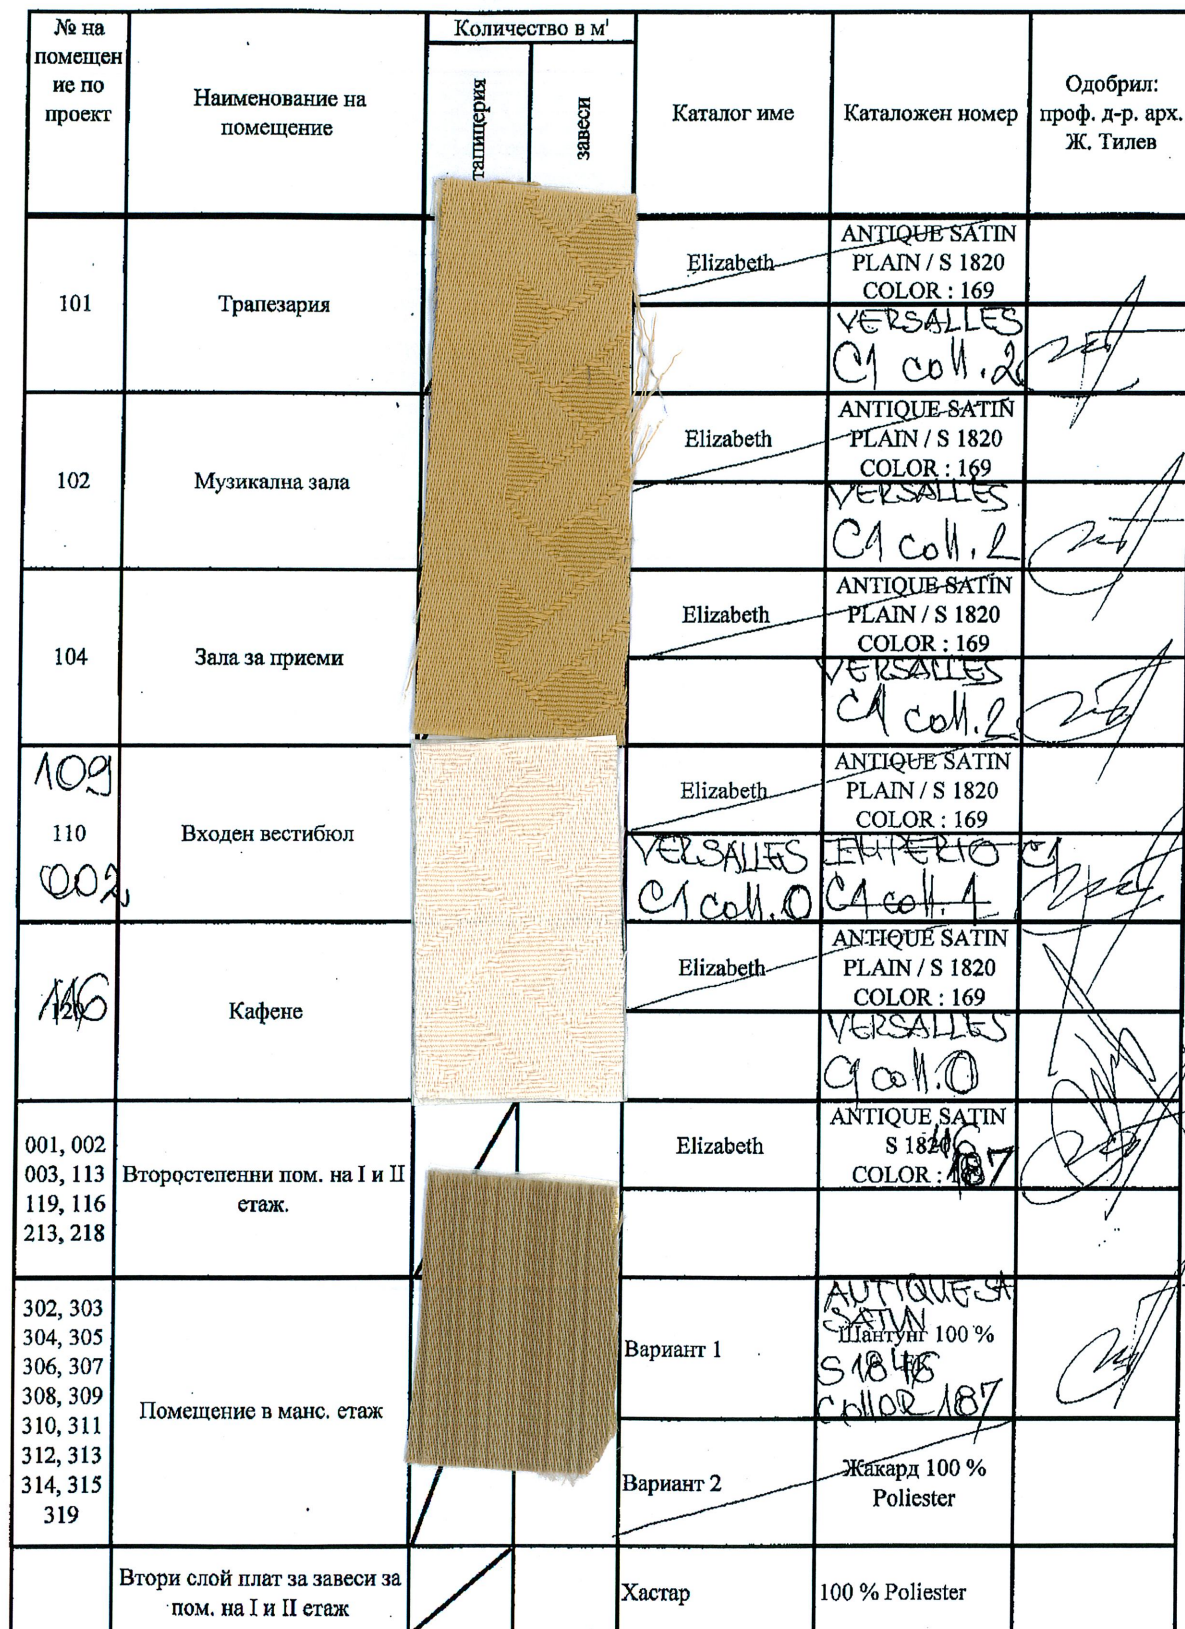 № на
помещен
ие по
проект
Наименование на
помещение
Количество в м'
тапицерия
завеси
Каталог име
Каталожен номер
Одобрил:
проф. д-р. арх.
Ж. Тилев
101
Трапезария
Elizabeth
ANTIQUE SATIN
PLAIN / S 1820
COLOR : 169
VERSALLES
C1 coll. 2
102
Музикална зала
Elizabeth
ANTIQUE SATIN
PLAIN / S 1820
COLOR : 169
VERSALLES
C1 coll. 2
104
Зала за приеми
Elizabeth
ANTIQUE SATIN
PLAIN / S 1820
COLOR : 169
VERSALLES
C1 coll. 2
109
110
002
Входен вестибюл
Elizabeth
ANTIQUE SATIN
PLAIN / S 1820
COLOR : 169
VERSALLES
C1 coll. 0
IMPERIO C1
C1 coll. 1
116
Кафене
Elizabeth
ANTIQUE SATIN
PLAIN / S 1820
COLOR : 169
VERSALLES
C1 coll. 0
001, 002
003, 113
119, 116
213, 218
Второстепенни пом. на I и II
етаж.
Elizabeth
ANTIQUE SATIN
S 1846
COLOR : 187
302, 303
304, 305
306, 307
308, 309
310, 311
312, 313
314, 315
319
Помещение в манс. етаж
Вариант 1
AUTIQUE SA
SATIN
Шантунг 100 %
S 1846
COllOR 187
Вариант 2
Жакард 100 %
Poliester
Втори слой плат за завеси за
пом. на I и II етаж
Хастар
100 % Poliester